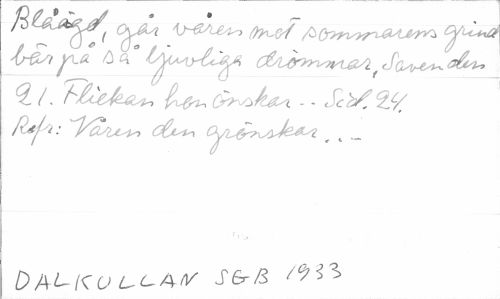 Blåögd, går våren mot sommarens grind
bär på så ljuvliga drömmar, den
21. Flickan hon önskar -- Sid. 24.
Refr: Våren den grönskar ...-
DALKULLAN SGB 1933